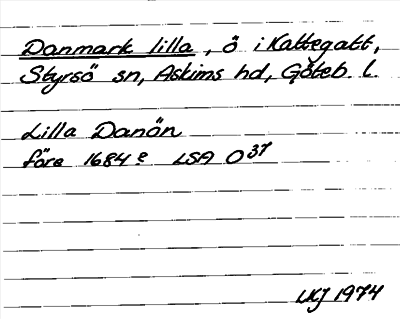 Danmark lilla, ö i Kattegatt,
Styrsö sn, Askims hd, Göteb. l.
Lilla Danön
före 1684 e LSA O 37
UKJ 1974